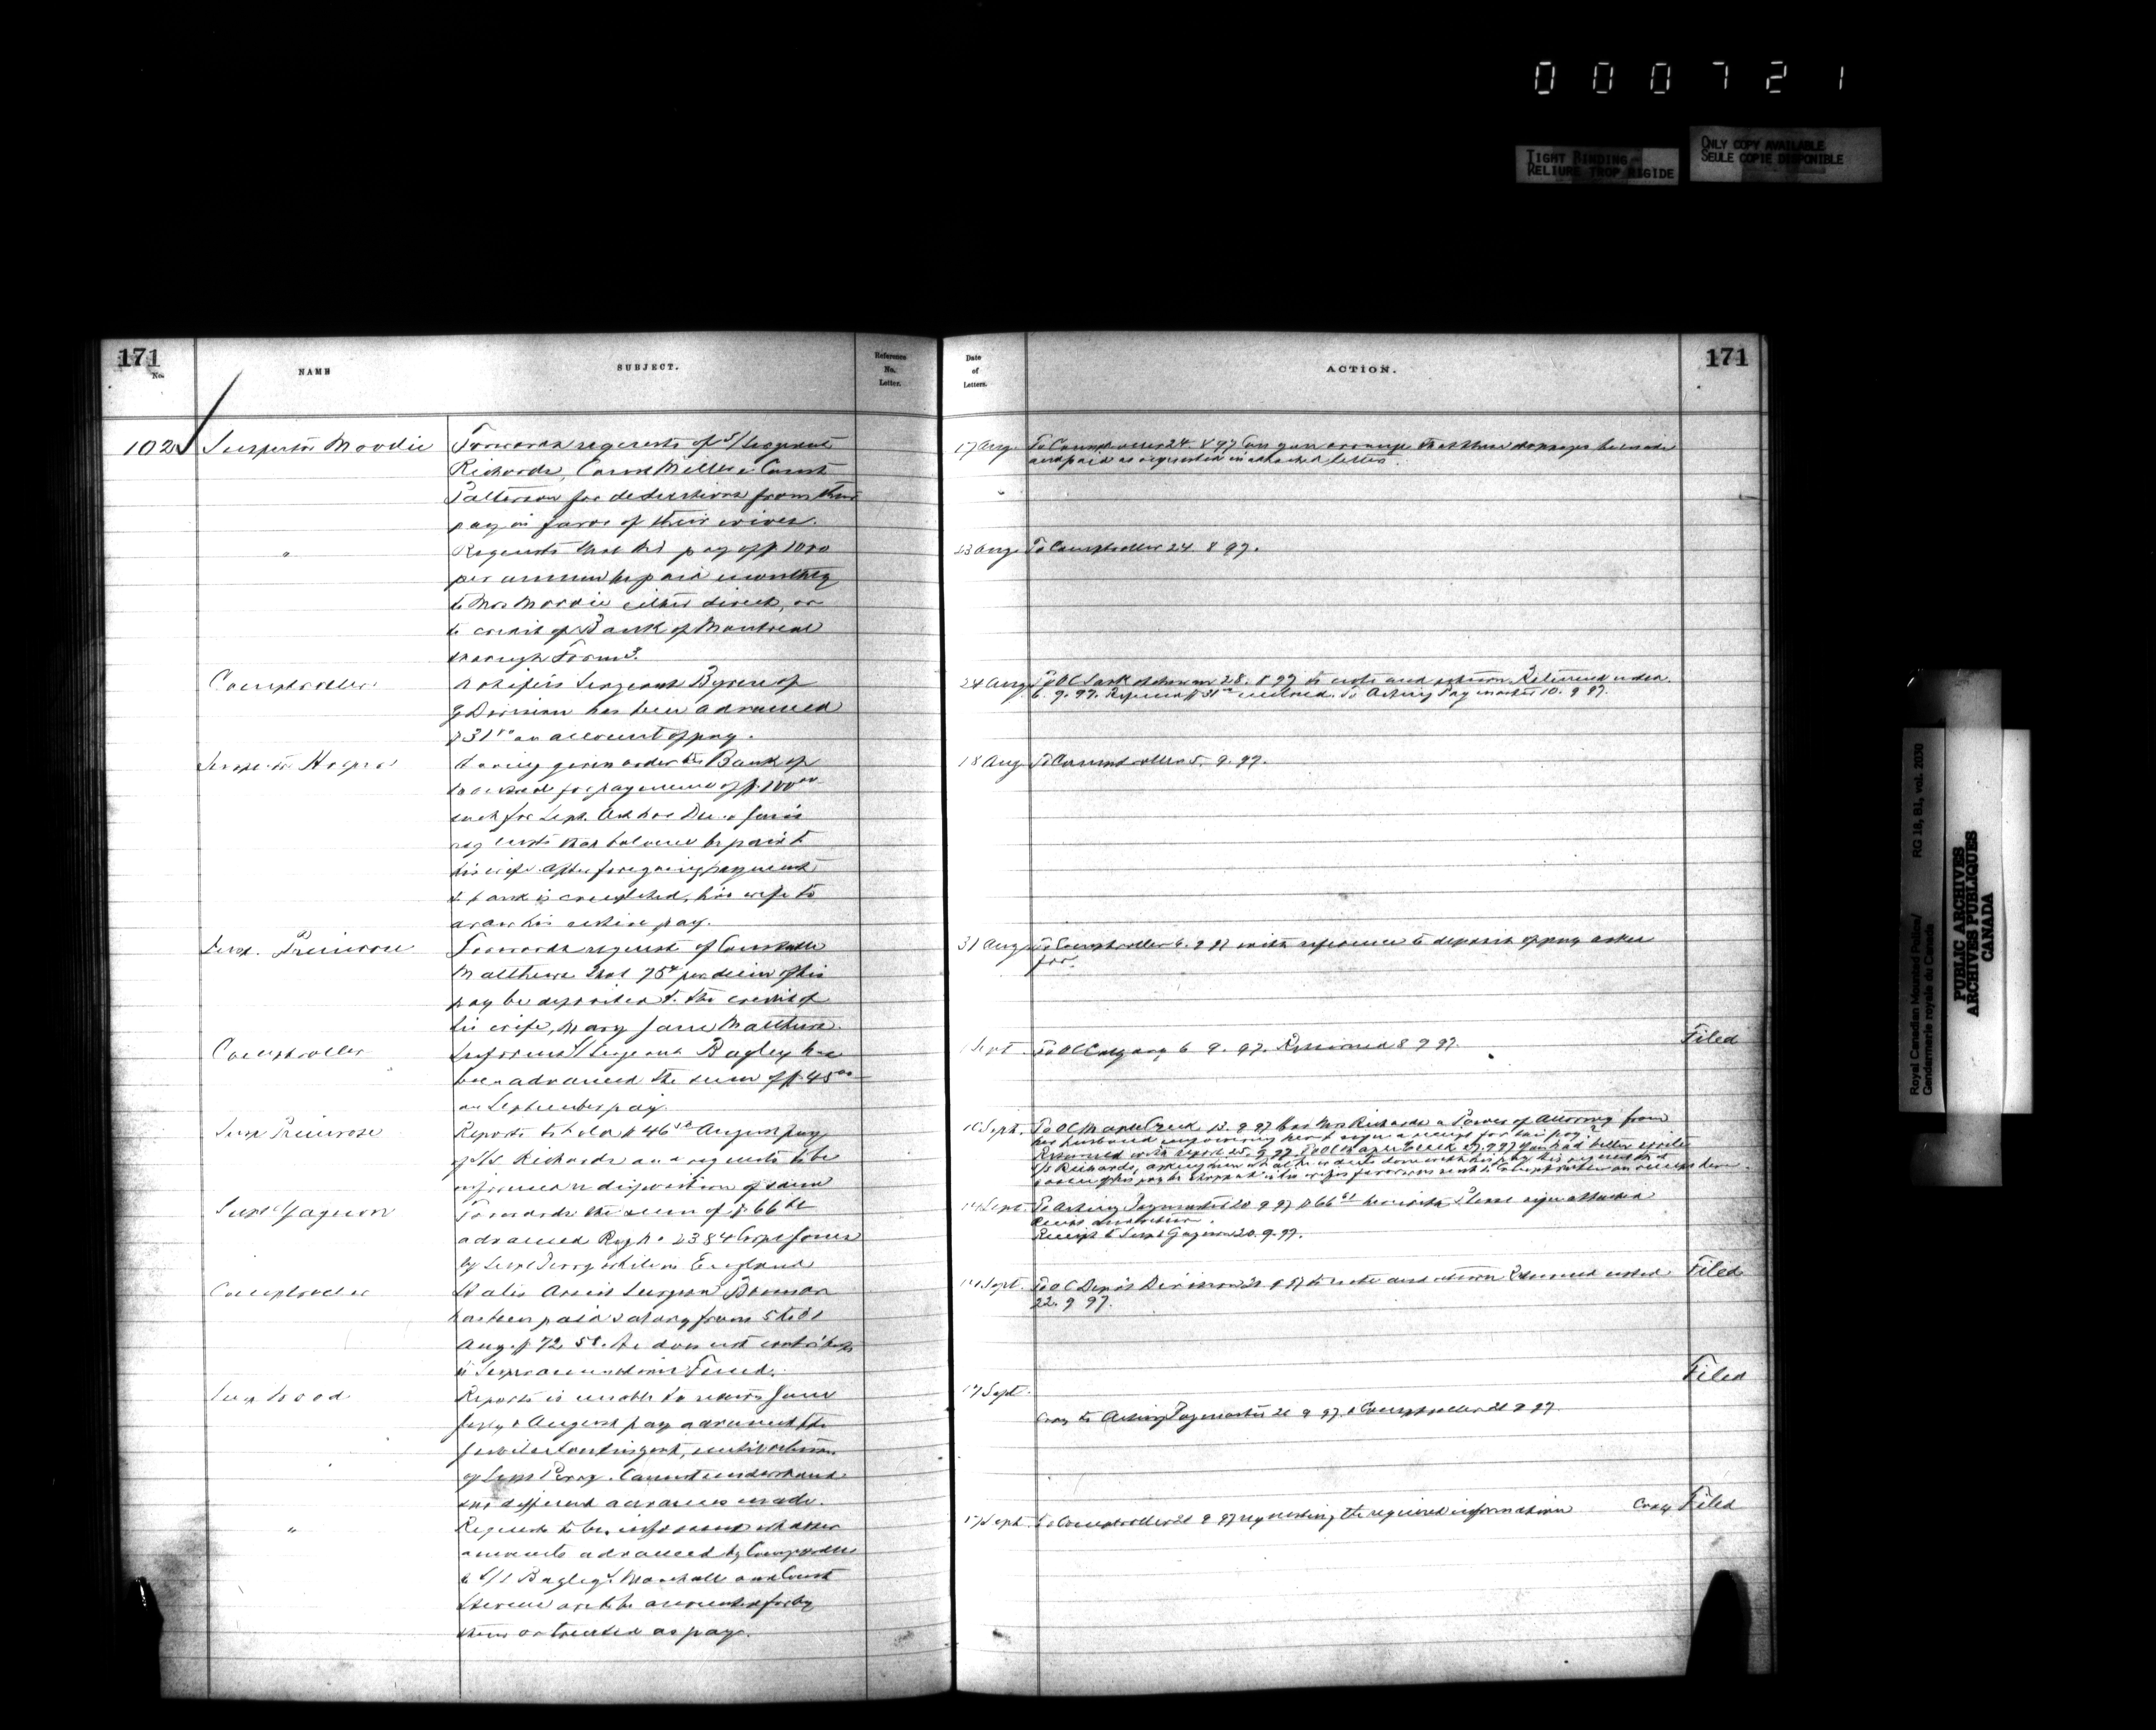 000721
TIGHT BINDING
RELIURE TROP RIGIDE
ONLY COPY AVAILABLE
SEULE COPIE DISPONIBLE
171
No.
NAME
SUBJECT.
Reference
No.
Letter.
Date
of
Letters.
ACTION.
171
102 Inspector Moodie
Forwards requests of S/Sergeant
Richards, Const Miller & Const
Patterson for deductions from their
pay in favor of their wives.
17 Aug. To Comptroller 24.8.97 Can you arrange that these stoppages be made
and paid as requested in attached letters.
"
Requests that his pay of $1000
per annum be paid monthly
to Mrs Moodie either direct, or
to credit of Bank of Montreal
23 Aug. To Comptroller 24.8.97.
Comptroller
Notifies Sergeant Byrne of
Division has been advanced
$31 on account of pay.
24 Aug. 28.8.97 to note and return. Returned noted
6.9.97. To Acting Paymaster 10.9.97.
Having given order to Bank of
for payment of $100.00
each for Sept. Oct Nov Dec & Janu
requests that balance be paid to
his wife. After foregoing payment
to bank is completed, his wife to
draw his entire pay.
18 Aug To Comptroller 5.9.97.
Insp. Primrose
Forwards request of Constable
Matthews that 75¢ per diem of his
pay be deposited to the credit of
his wife, Mary Jane Matthews.
31 Aug To Comptroller 6.9.97 with reference to deposit of pay asked
for.
Comptroller
Informs S/Sergeant Bagley has
been advanced the sum of $45.00
on September pay
Sept. To OC Calgary 6.9.97. Returned 8 9 97.
Filed
Insp Primrose
Reports he holds $46 August pay
of S/S Richards and requests to be
informed re disposition of same
10 Sept. To OC Maple Creek 13.9.97 Has Mrs Richards a Power of Attorney from
her husband empowering her to sign a receipt for his pay?
Returned with report 25.9.97. To OC Maple Creek 27.9.97 You had better write
S/S Richards, asking him what he wants done with his pay
Supt Gagnon
Forwards the sum of $66
advanced Reg No 2384 Corpl Jones
by Supt Perry while in England
Sept. To Acting Paymaster 20 9 97 $66 herewith. Please sign attached
Receipt to Supt Gagnon 20.9.97.
Comptroller
States Assist Surgeon
has been paid salary from 5 to 31
Aug. $72. He does not contribute
to Superannuation Fund.
Sept. To OC Depot Division to note and return Returned noted
22.9 97.
Filed
Filed
Insp Wood
Reports is unable to return June
July & August pay advanced the
Jubilee Contingent, until return
of Supt Perry. Cannot understand
the different advances made.
17 Sept.
Copy to Acting Paymaster 21 9 97. & Comptroller 21 9 97.
"
Requests to be informed whether
amounts advanced by Comptroller
to S/S Bagley, Marshall and Const
are to be accounted for by
them or treated as pay.
17 Sept. To Comptroller 21 9 97 requesting the required information
Copy Filed
Royal Canadian Mounted Police/
Gendarmerie royale du Canada
RG 18, B1, vol. 2030
PUBLIC ARCHIVES
ARCHIVES PUBLIQUES
CANADA